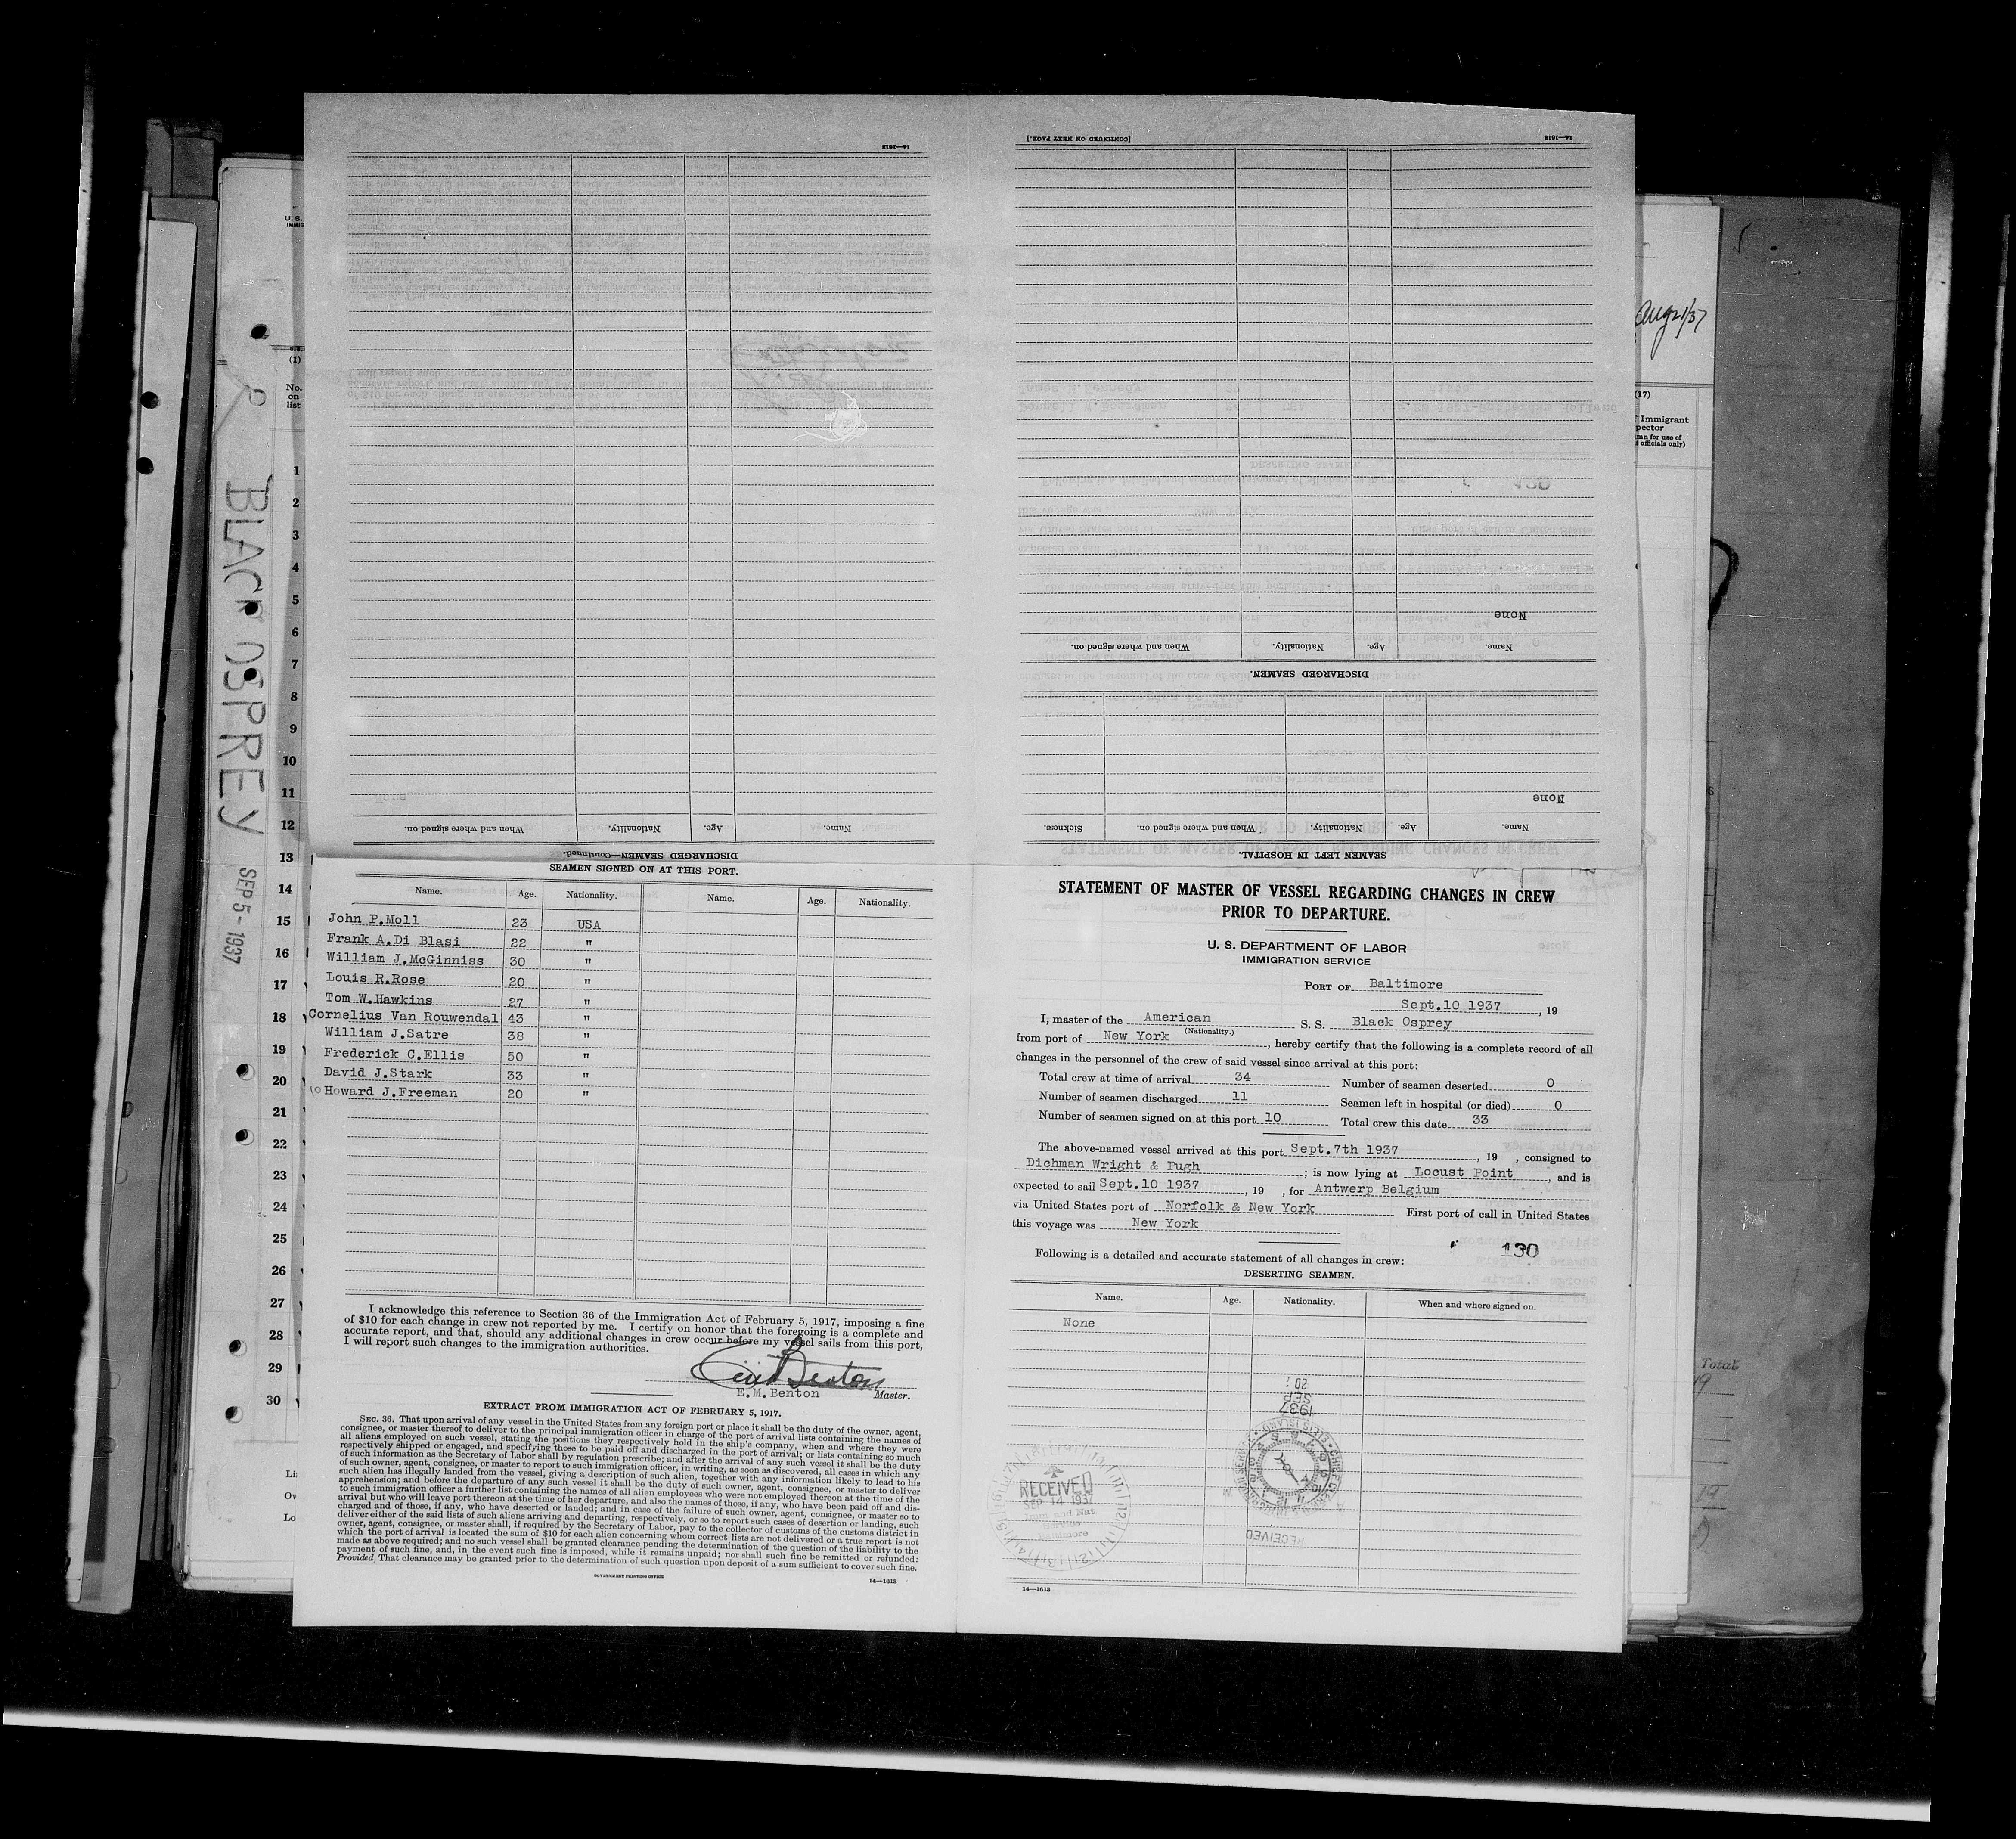 14—1613
[CONTINUED ON NEXT PAGE.]
14—1613
None
Name. Age. Nationality. When and where signed on.
DISCHARGED SEAMEN.
None
Name. Age. Nationality. When and where signed on. Sickness.
SEAMEN LEFT IN HOSPITAL.
Name. Age. Nationality. When and where signed on.
DISCHARGED SEAMEN—Continued.
SEAMEN SIGNED ON AT THIS PORT.
Name. Age. Nationality. Name. Age. Nationality.
John P.Moll 23 USA
Frank A.Di Blasi 22 "
William J.McGinniss 30 "
Louis R.Rose 20 "
Tom W.Hawkins 27 "
Cornelius Van Rouwendal 43 "
William J.Satre 38 "
Frederick C.Ellis 50 "
David J.Stark 33 "
10 Howard J.Freeman 20 "
I acknowledge this reference to Section 36 of the Immigration Act of February 5, 1917, imposing a fine
of $10 for each change in crew not reported by me. I certify on honor that the foregoing is a complete and
accurate report, and that, should any additional changes in crew occur before my vessel sails from this port,
I will report such changes to the immigration authorities.
E.M.Benton Master.
EXTRACT FROM IMMIGRATION ACT OF FEBRUARY 5, 1917.
SEC. 36. That upon arrival of any vessel in the United States from any foreign port or place it shall be the duty of the owner, agent,
consignee, or master thereof to deliver to the principal immigration officer in charge of the port of arrival lists containing the names of
all aliens employed on such vessel, stating the positions they respectively hold in the ship's company, when and where they were
respectively shipped or engaged, and specifying those to be paid off and discharged in the port of arrival; or lists containing so much
of such information as the Secretary of Labor shall by regulation prescribe; and after the arrival of any such vessel it shall be the duty
of such owner, agent, consignee, or master to report to such immigration officer, in writing, as soon as discovered, all cases in which any
such alien has illegally landed from the vessel, giving a description of such alien, together with any information likely to lead to his
apprehension; and before the departure of any such vessel it shall be the duty of such owner, agent, consignee, or master to deliver
to such immigration officer a further list containing the names of all alien employees who were not employed thereon at the time of the
arrival but who will leave port thereon at the time of her departure, and also the names of those, if any, who have been paid off and dis-
charged and of those, if any, who have deserted or landed; and in case of the failure of such owner, agent, consignee, or master so to
deliver either of the said lists of such aliens arriving and departing, respectively, or so to report such cases of desertion or landing, such
owner, agent, consignee, or master shall, if required by the Secretary of Labor, pay to the collector of customs of the customs district in
which the port of arrival is located the sum of $10 for each alien concerning whom correct lists are not delivered or a true report is not
made as above required; and no such vessel shall be granted clearance pending the determination of the question of the liability to the
payment of such fine, and, in the event such fine is imposed, while it remains unpaid; nor shall such fine be remitted or refunded:
Provided That clearance may be granted prior to the determination of such question upon deposit of a sum sufficient to cover such fine.
GOVERNMENT PRINTING OFFICE
14—1613
STATEMENT OF MASTER OF VESSEL REGARDING CHANGES IN CREW
PRIOR TO DEPARTURE.
U. S. DEPARTMENT OF LABOR
IMMIGRATION SERVICE
PORT OF Baltimore
Sept.10 1937, 19
I, master of the American S. S. Black Osprey
(Nationality.)
from port of New York, hereby certify that the following is a complete record of all
changes in the personnel of the crew of said vessel since arrival at this port:
Total crew at time of arrival 34 Number of seamen deserted 0
Number of seamen discharged 11 Seamen left in hospital (or died) 0
Number of seamen signed on at this port 10 Total crew this date 33
The above-named vessel arrived at this port Sept.7th 1937, 19 , consigned to
Dichman Wright & Pugh; is now lying at Locust Point, and is
expected to sail Sept.10 1937, 19 , for Antwerp Belgium
via United States port of Norfolk & New York First port of call in United States
this voyage was New York
130
Following is a detailed and accurate statement of all changes in crew:
DESERTING SEAMEN.
Name. Age. Nationality. When and where signed on.
None
1937
SEP
20
RECEIVED
SEP 14 1937
Baltimore
RECEIVED
14—1613
BLACK OSPREY
SEP 5 - 1937
U. S.
IMMIG
(1)
No.
on
list
1
2
3
4
5
6
7
8
9
10
11
12
13
14
15
16
17
18
19
20
21
22
23
24
25
26
27
28
29
30
Li
Ow
Lo
Aug 21/37
(17)
Immigrant
pector
mn for use of
officials only)
Total
19
19